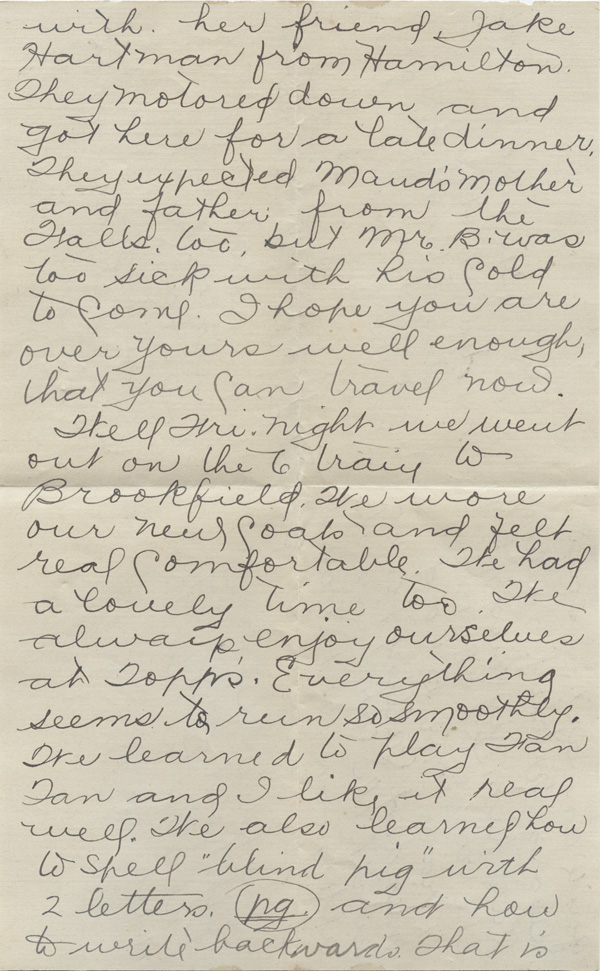 with. her friend, Jake
Hartman from Hamilton.
They motored down and
got here for a late dinner.
They expected Maud's mother
and father from the
Falls, too, but Mr. B. was
too sick with his cold
to come. I hope you are
over yours well enough,
that you can travel now.
Well Fri. night we went
out on the 6 train to
Brookfield. We wore
our new coats and felt
real comfortable. We had
a lovely time too. We
always enjoy ourselves
at Topp's. Everything
seems to run so smoothly.
We learned to play Fan
Tan and I like it real
well. We also learned how
to spell "blind pig" with
2 letters. pg. and how
to write backwards. That is